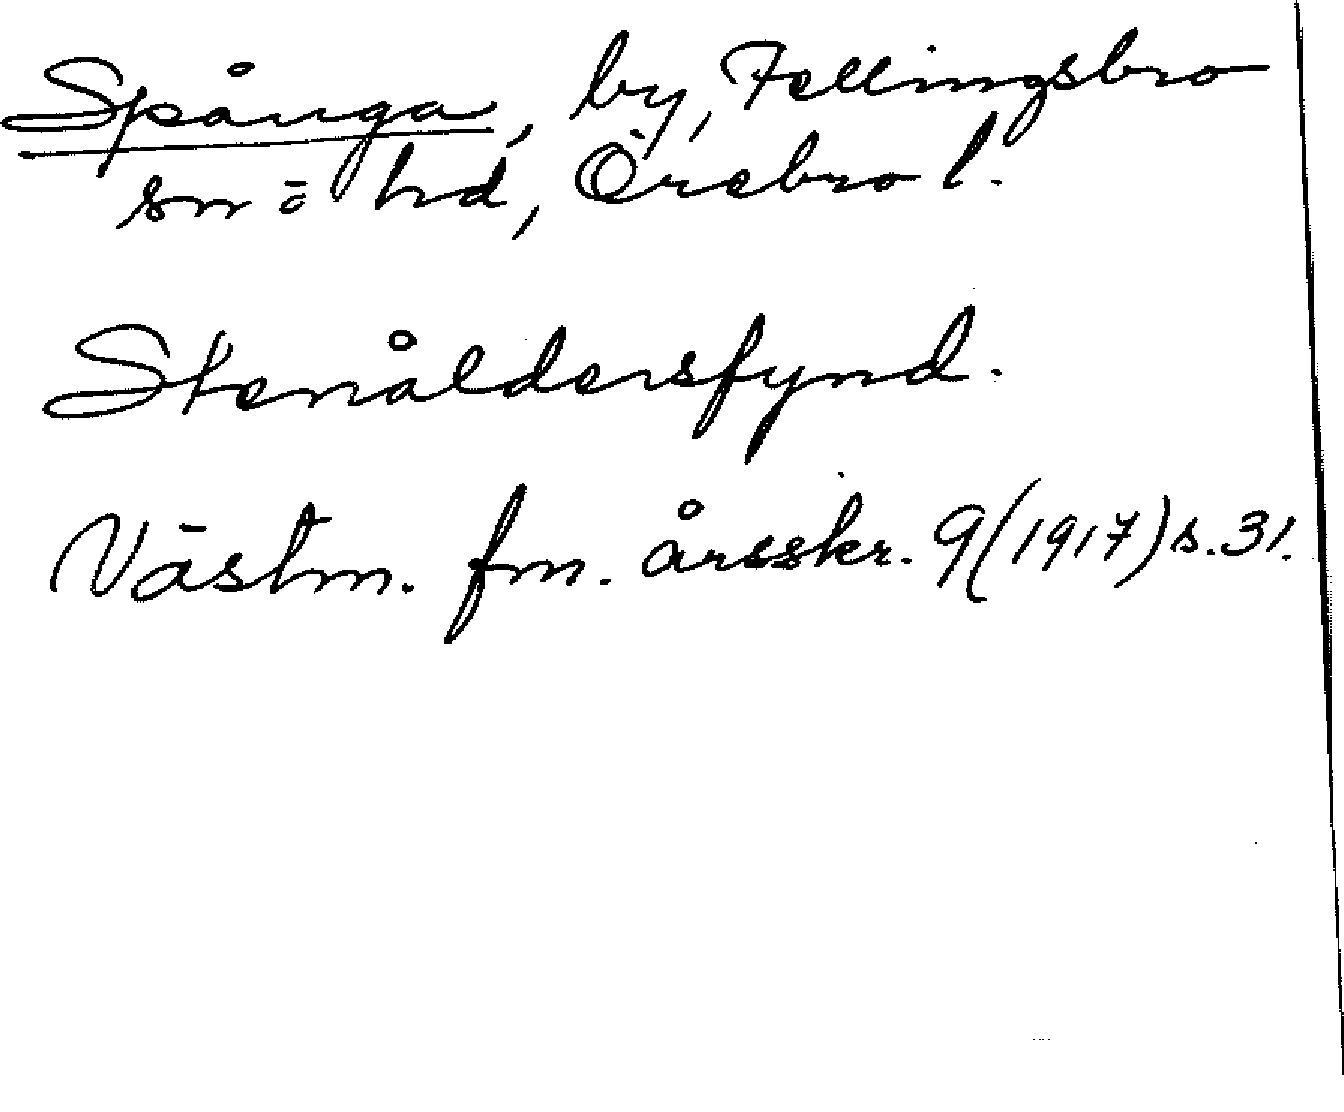 Spånga, by, Fellingsbro
sn o hd, Örebro l.
Stenåldersfynd.
Västm. fm. årsskr. 9(1917)s.31.